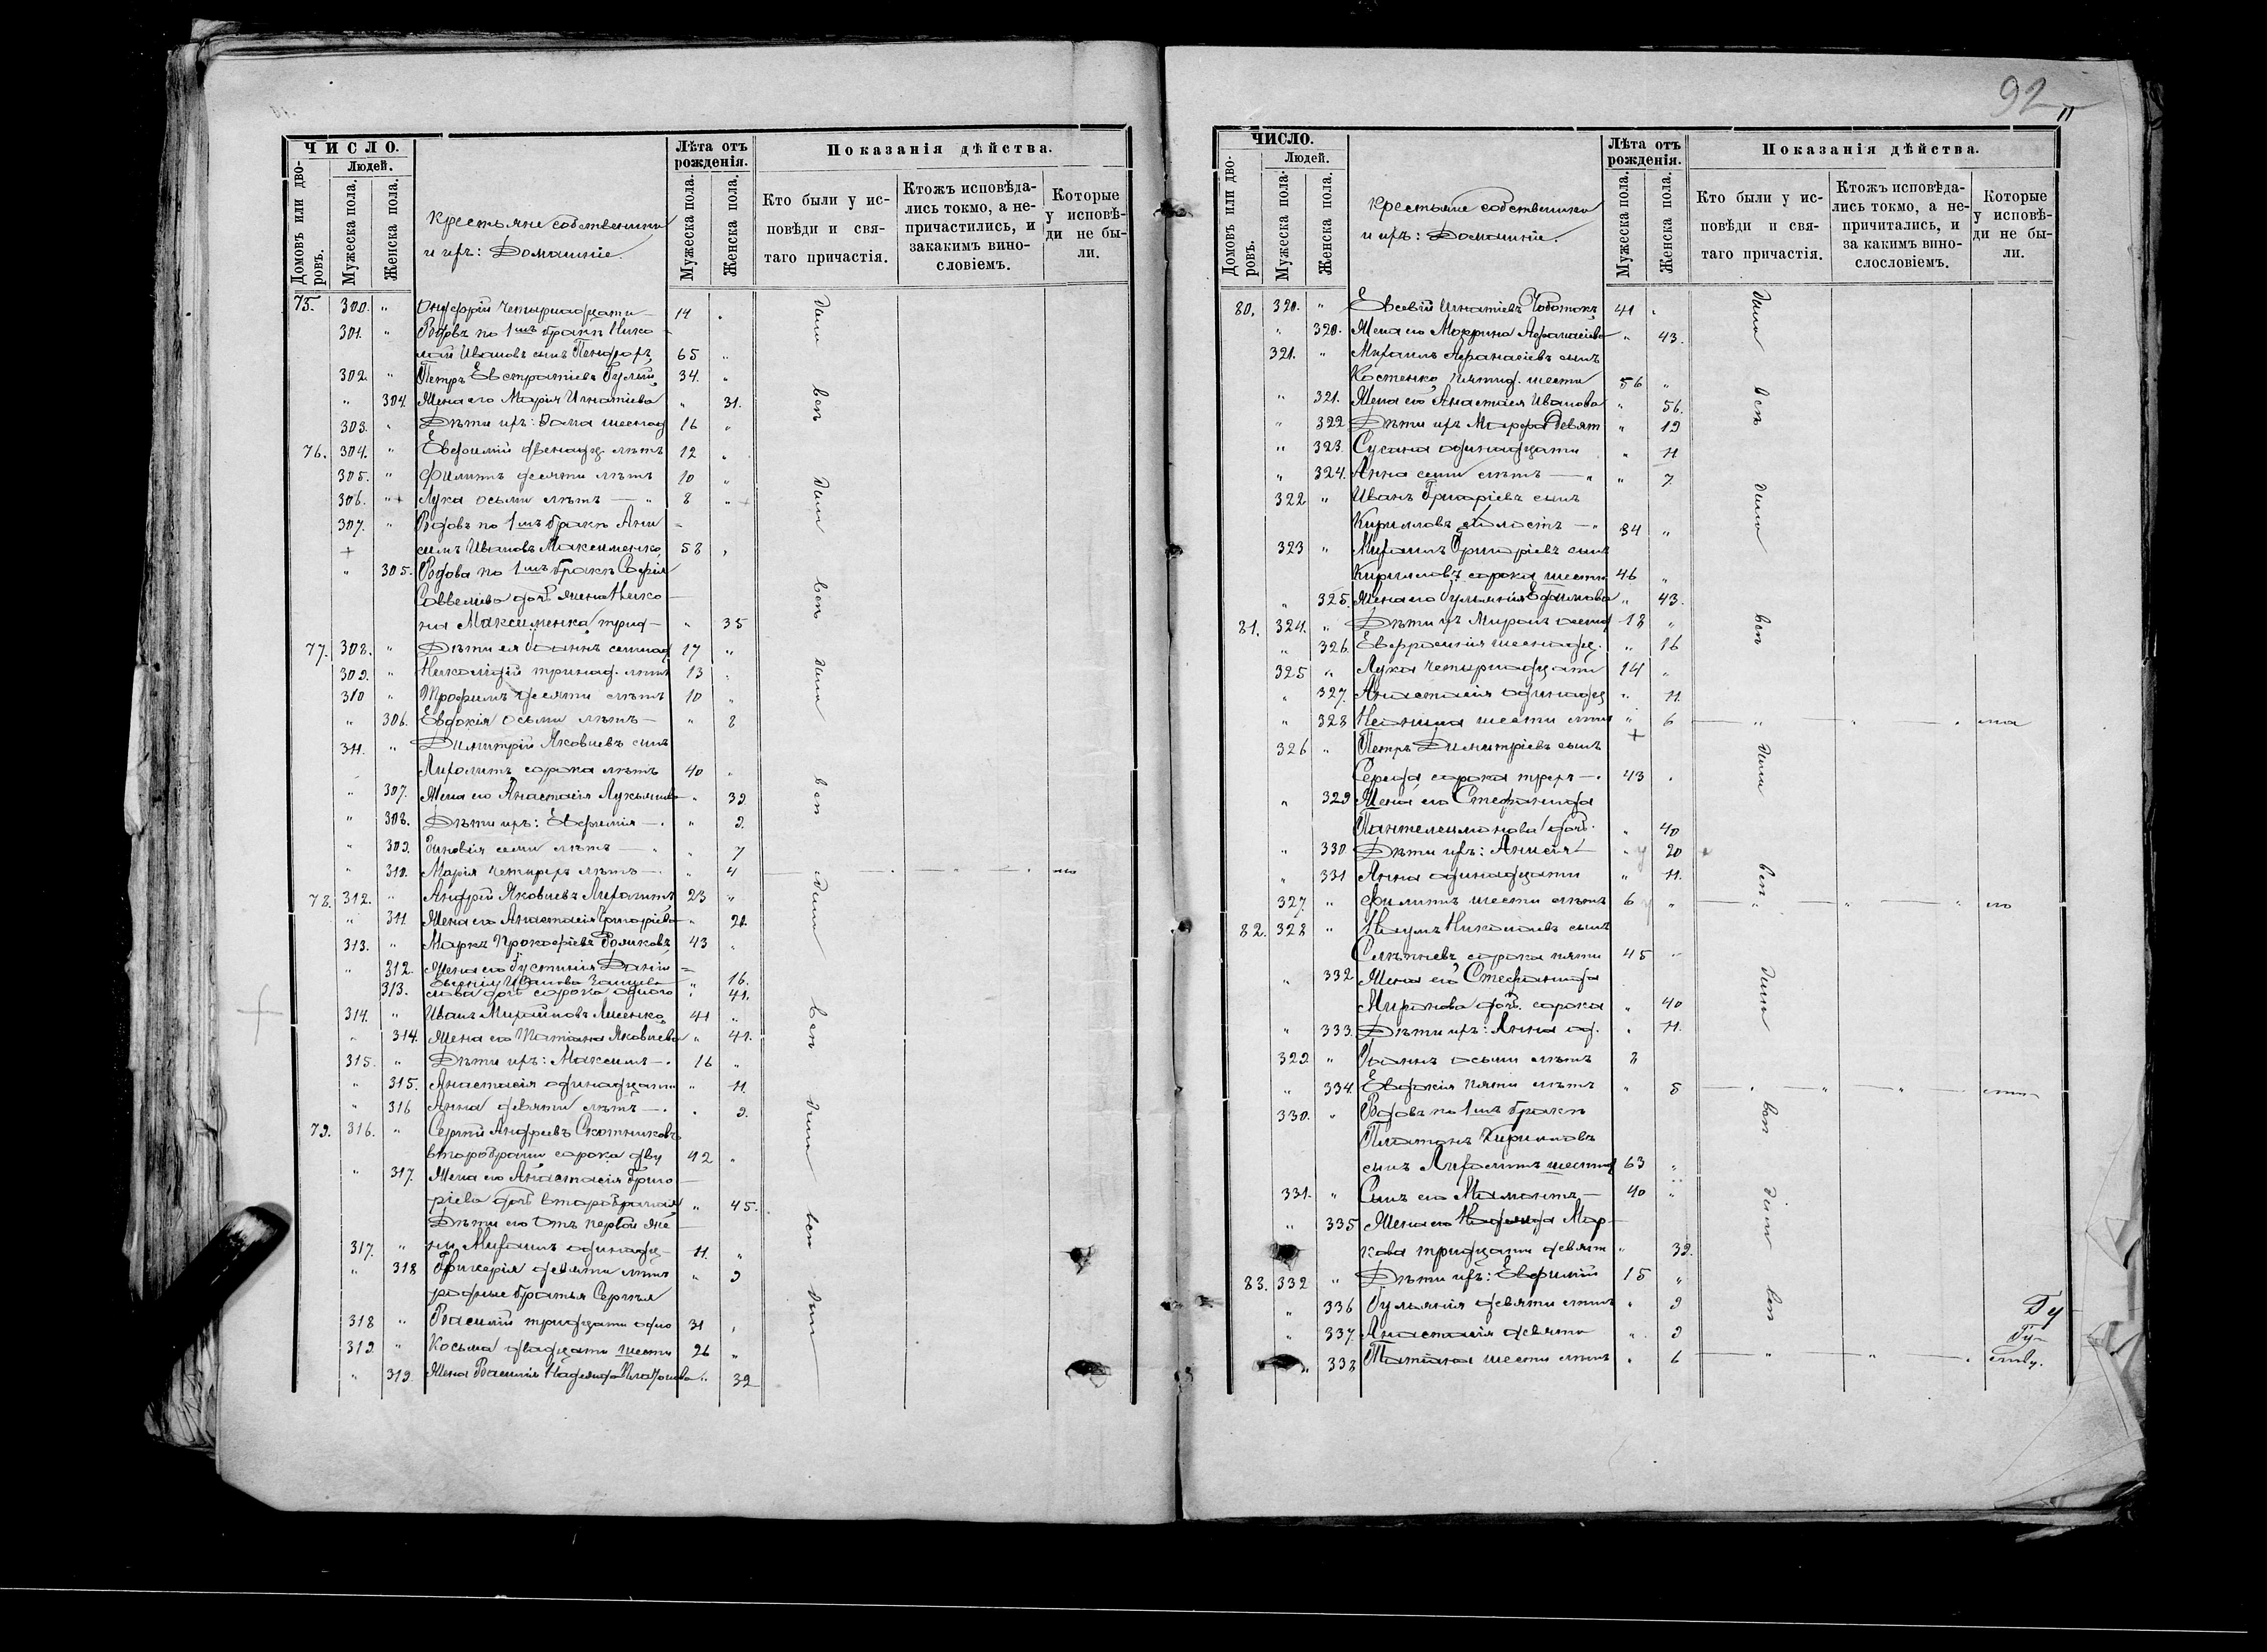 ЧИСЛО.
Людей.
Домовъ или дворовъ.
Мужеска пола.
Женска пола.
Крестьяне собственники
и ихъ: Домашніе.
Лѣта отъ рожденія.
Мужеска пола.
Женска пола.
Показанія дѣйства.
Кто были у исповѣди и святаго причастія.
Ктожъ исповѣдались токмо, а непричастились, и закакимъ винословіемъ.
Которые у исповѣди не были.
75. 300. " Онуфрій четырнадцати 14 "
301. " Вдовъ по 1мъ бракѣ Нико-
лай Ивановъ сынъ 65 "
302 " Петръ Евстратіевъ Гулый 34. "
" 304. Жена его Марія Игнатіева " 31.
303. " Дѣти ихъ: Ѳома шеснад 16 "
76. 304. " Евфимій двенадц. лѣтъ 12 "
305. " Филиппъ десяти лѣтъ 10 "
306. " + Лука осьми лѣтъ — " 8 " +
307. " Вдовъ по 1мъ бракѣ Ани-
симъ Ивановъ Максименко 58 "
+
" 305. Вдова по 1мъ бракѣ Софія
Саввелиева дочь жена Нико-
на Максименка трид- " 35
77. 308. " Дѣти ея Іоаннъ семнад 17 "
309. " Никодидій тринад. лѣтъ 13 "
310 " Трофимъ десяти лѣтъ 10 "
" 306. Евдокія осьми лѣтъ — " 8
311. " Димитрій Яковлевъ сынъ
Лихолитъ сорока лѣтъ 40 "
" 307. Жена его Анастасія Лукьянова " 39.
" 308. Дѣти ихъ: Евфимія — " 9.
" 309. Зиновія семи лѣтъ — " " 7
" 310. Марія четырехъ лѣтъ — " 4
78. 312. " Андрей Яковлевъ Лихолитъ 23 "
" 311 Жена его Анастасія Григоріева " 21.
313. " Маркъ Прокофіевъ 43 "
" 312. Жена его Іустинія Дани-
Евгенія Иванова " 16.
313. лова дочь сорока одного " 41.
314. " Иванъ Михайловъ Лисенко 41 "
" 314. Жена его Татіана Яковлева " 41.
315. " Дѣти ихъ: Максимъ — 16 "
" 315. Анастасія одинадцати " 11.
" 316 Анна девяти лѣтъ — " 9.
79. 316. " Сергій Андреевъ Скотниковъ
второбрачн сорока дву 42 "
" 317. Жена его Анастасія Григо-
ріева дочь второбрачная " 45.
Дѣти его отъ первой же-
317. " ны Михаилъ одинадц- 11. "
" 318 Гликерія девяти лѣтъ " 9
родные братья Сергія
318 " Василій тридцати одно 31 "
319. " Косьма двадцати шести 26 "
" 319. Жена Василія Надежда Платонова " 32
92
11
ЧИСЛО.
Людей.
Домовъ или дворовъ.
Мужеска пола.
Женска пола.
Крестьяне собственники
и ихъ: Домашніе.
Лѣта отъ рожденія.
Мужеска пола.
Женска пола.
Показанія дѣйства.
Кто были у исповѣди и святаго причастія.
Ктожъ исповѣдались токмо, а непричитались, и за какимъ винослословіемъ.
Которые у исповѣди не были.
80. 320. " Евсевій Игнатіевъ Чоботокъ 41 "
" 320. Жена его Маррина Афанасіева " 43.
321. " Михаилъ Афанасіевъ сынъ
Костенко пятид. шести 56 "
" 321. Жена его Анастасія Иванова " 56.
" 322 Дѣти ихъ Марфа девят " 19
" 323. Сусана одинадцати " 11
" 324. Анна семи лѣтъ — " " 7
322 " Иванъ Григоріевъ сынъ
Кирилловъ холостъ — " 34 "
323 " Михаилъ Григоріевъ сынъ
Кирилловъ сорока шести 46 "
" 325. Жена его Іуліанія Ефимова " 43.
81. 324. " Дѣти ихъ Миронъ осмнад 18 "
" 326. Евфросинія шеснадц. " 16
325 " Лука четырнадцати 14 "
" 327. Анастасія одинадц " 11.
" 328 шести лѣтъ " 6
326 " Петръ Димитріевъ сынъ +
Середа сорока трехъ — 43 "
" 329 Жена его Стефанида
Пантелеимонова дочь " 40
" 330 Дѣти ихъ: Анисія " 20
" 331 Анна одинадцати " 11.
327. " Филиппъ шести лѣтъ 6 "
82. 328 " Наумъ Николаевъ сынъ
сорока пяти 45 "
" 332 Жена его Стефанида
Миронова дочь сорока " 40
" 333. Дѣти ихъ: Анна од. " 11.
329 " Іоаннъ осьми лѣтъ 8
" 334. Евдокія пяти лѣтъ " 5
330. " Вдовъ по 1мъ бракѣ
Платонъ Кирилловъ
сынъ Лихолитъ шестид 63 "
331. " Сынъ его Мамонтъ — 40 "
" 335 Жена его Надежда Мар-
кова тридцати девят " 39.
83. 332 " Дѣти ихъ: Евфимій 15 "
" 336 Іуліанія девяти лѣтъ " 9
" 337. Анастасія девяти " 9
" 338 Татіана шести лѣтъ " 6